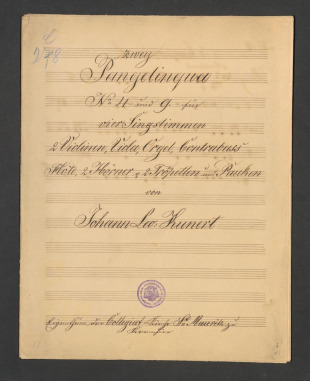 zwey
Pangelingua
No 4 und 9 für
vier Singstimmen
2 Violinen, Viola, Orgel, Contrabass
Flöte, 2 Hörner, 2 Trompetten und Pauken
von
Johann Leo. Kunert
Eigenthum der Collegiat Kirche St. Mauritz zu
Kremsier